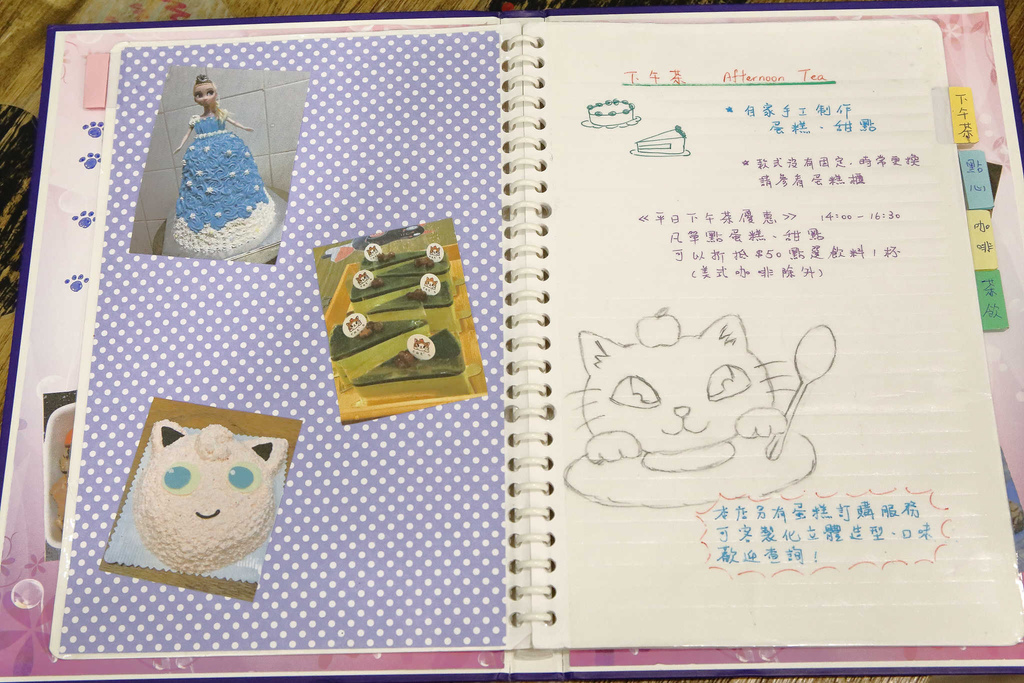 下午茶 Afternoon Tea
* 自家手工制作
蛋糕、甜點
* 款式沒有固定.時常更換
請參考蛋糕櫃
《平日下午茶優惠》 14:00-16:30
凡單點蛋糕、甜點
可以折抵$50點選飲料1杯
(美式咖啡除外)
本店另有蛋糕訂購服務
可客製化立體造型、口味
歡迎查詢!
下午茶
點心
咖啡
茶飲